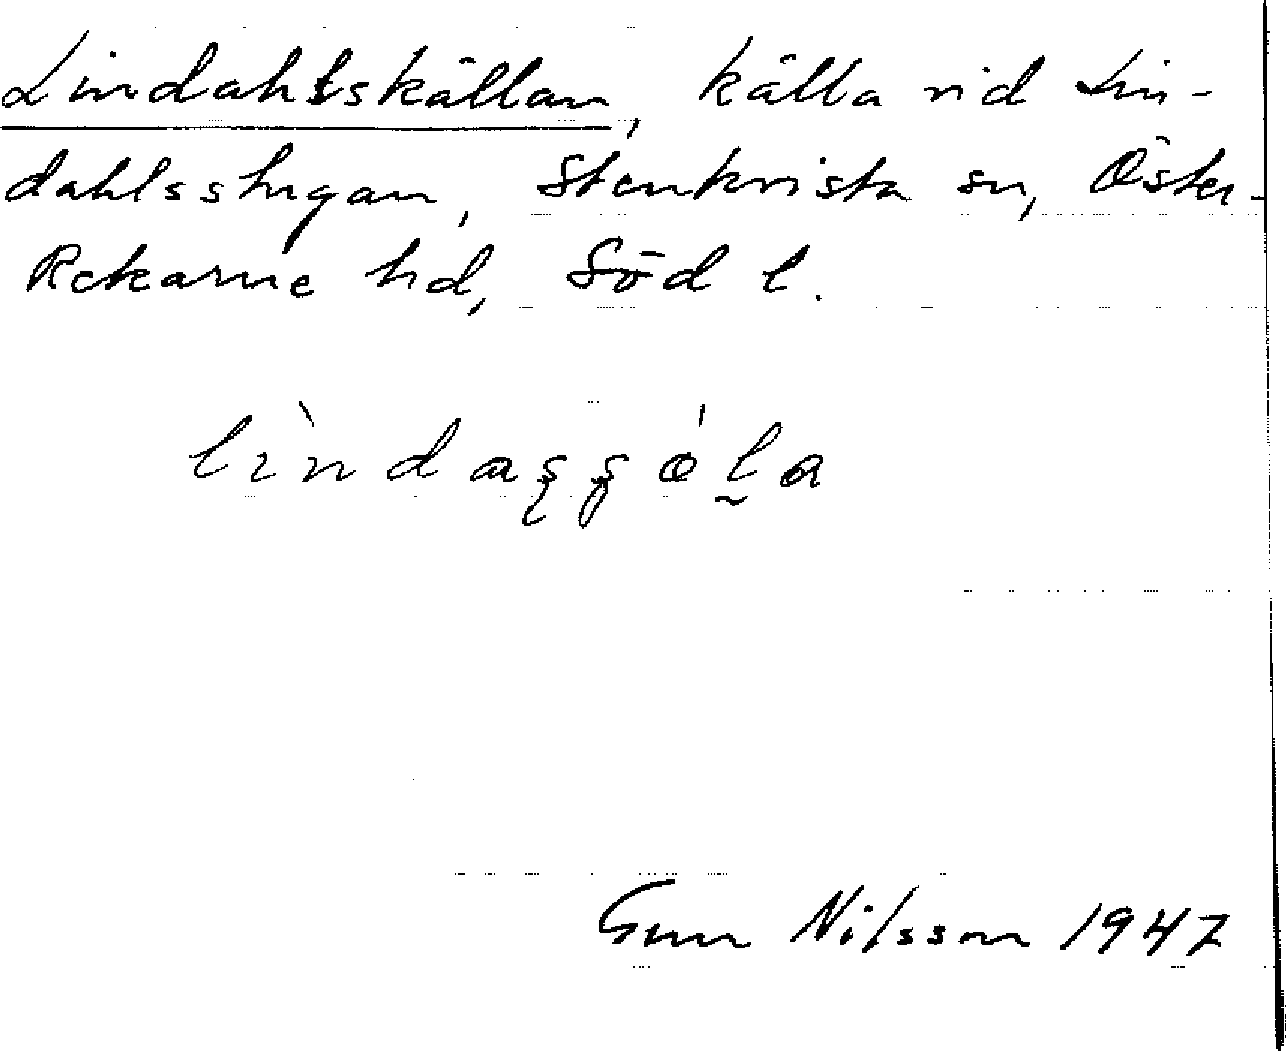 Lindahlskällan, källa vid Lin-
dahlsstugan, Stenkvista sn, Öster-
Rekarne hd, Söd l.
Gun Nilsson 1947